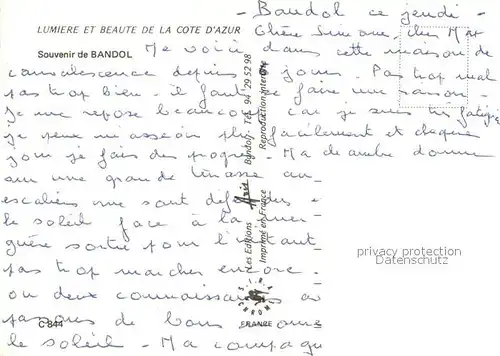 - Bandol ce jeudi -
LUMIERE ET BEAUTE DE LA COTE D'AZUR
Chère Simone, cher Max
Souvenir de BANDOL
Me voici dans cette maison de
convalescence depuis jours. Pas trop mal
pas trop bien. il faut se faire une raison.
Je me repose beaucoup car je suis très fatiguée
je peux m'asseoir plus facilement et chaque
jour je fais des progrès. Ma chambre donne
sur une grande terrasse
escaliers me sont difficiles
le soleil face à la mer
guère sortie pour l'instant
pas trop marcher encore.
ou deux connaissances
passons de bons
le soleil - Ma compagne
Les Editions Aris Bandol - Tél. 94 29 52 98
Imprimé en France Reproduction interdite
C 844
FRANCE
privacy protection
Datenschutz